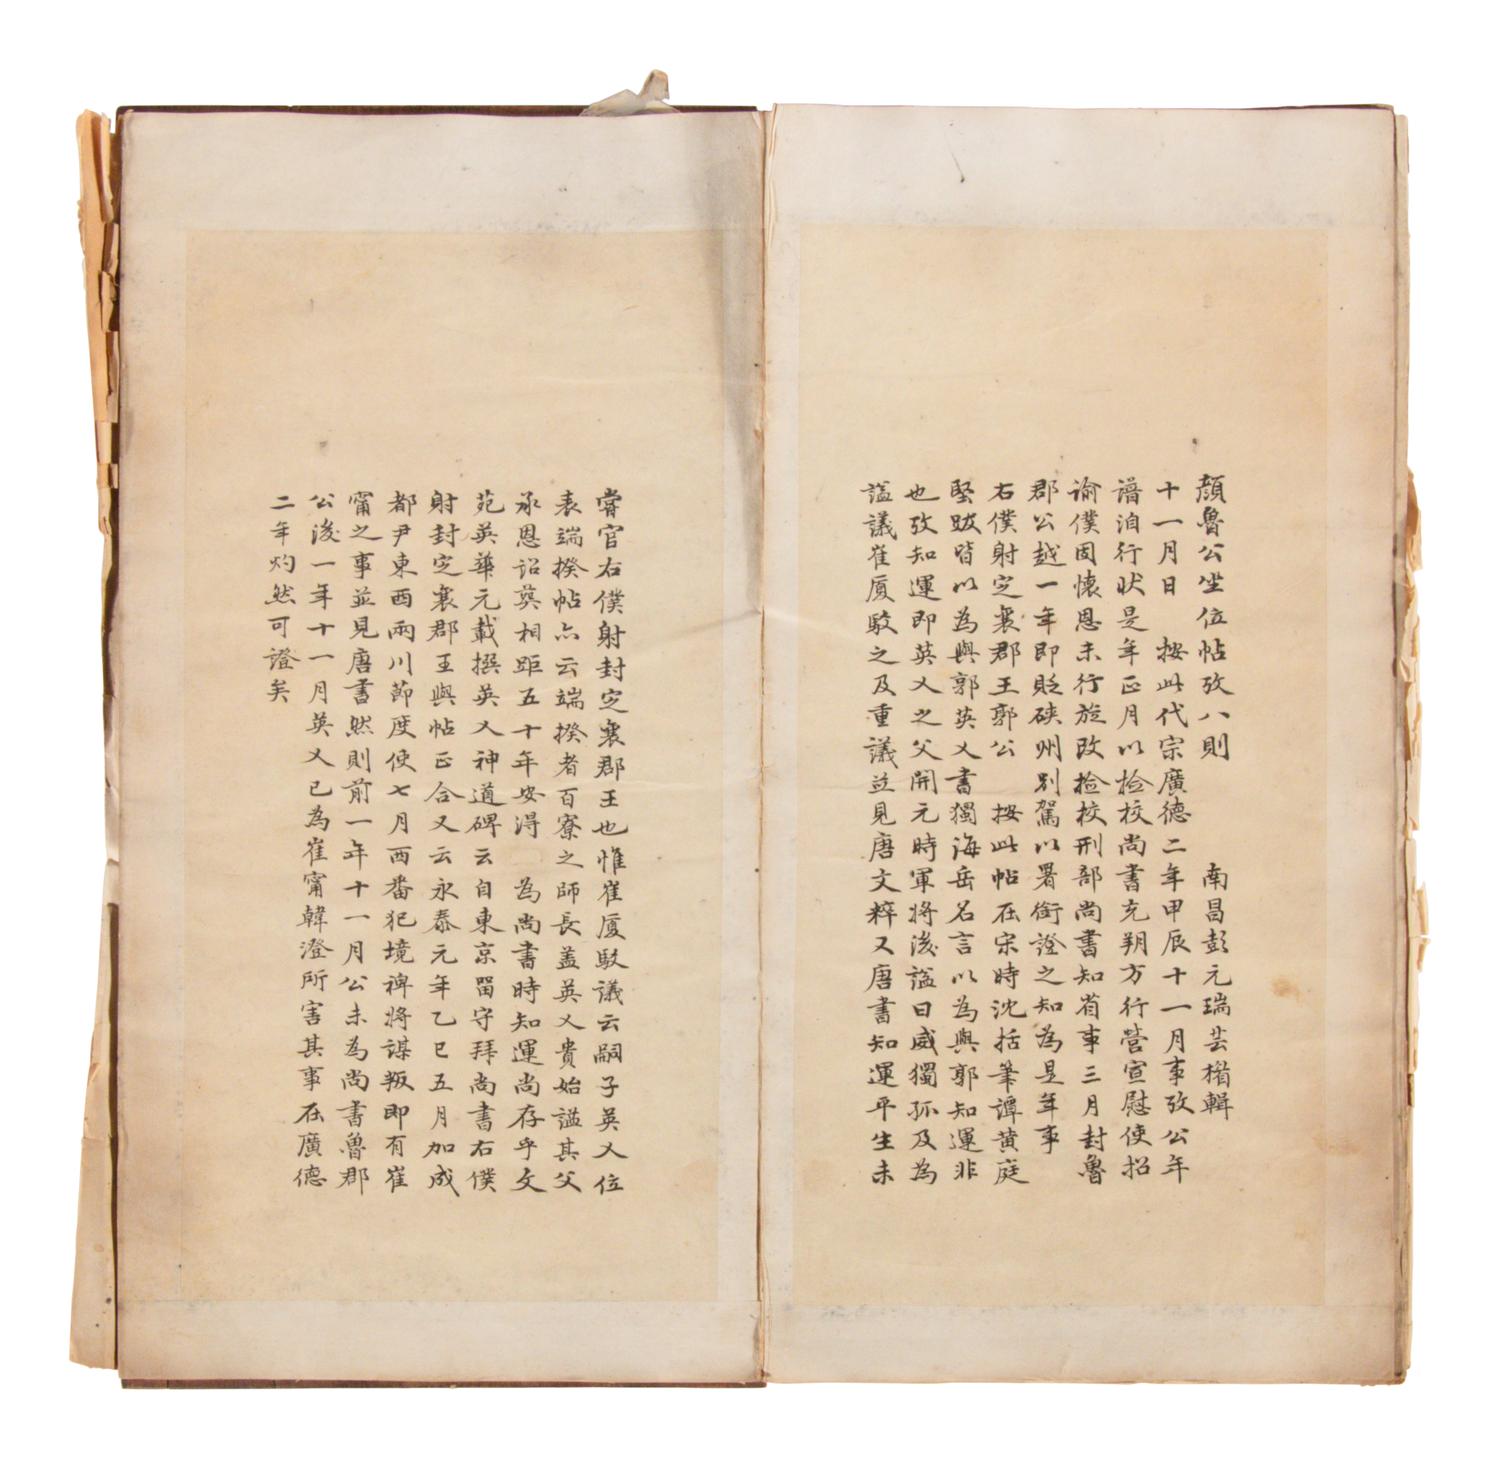 顏魯公坐位帖攷八則　南昌彭元瑞芸楣輯
十一月日　按此代宗廣德二年甲辰十一月事攷公年
譜洎行狀是年正月以檢校尚書充朔方行營宣慰使招
諭僕固懷恩未行旋改檢校刑部尚書知省事三月封魯
郡公越一年即貶硤州別駕以署銜證之知為是年事
右僕射定襄郡王郭公　按此帖在宋時沈括筆譚黃庭
堅跋皆以為與郭英乂書獨海岳名言以為與郭知運非
也攷知運即英乂之父開元時軍將後謚曰威獨孤及為
謚議崔厦駮之及重議並見唐文粹又唐書知運平生未
嘗官右僕射封定襄郡王也惟崔厦駮議云嗣子英乂位
表端揆帖亦云端揆者百寮之師長蓋英乂貴始謚其父
承恩詔葬相距五十年安得　為尚書時知運尚存乎文
苑英華元載撰英乂神道碑云自東京留守拜尚書右僕
射封定襄郡王與帖正合又云永泰元年乙巳五月加成
都尹東西兩川節度使七月西番犯境裨將謀叛即有崔
甯之事並見唐書然則前一年十一月公未為尚書魯郡
公後一年十一月英乂已為崔甯韓澄所害其事在廣德
二年灼然可證矣